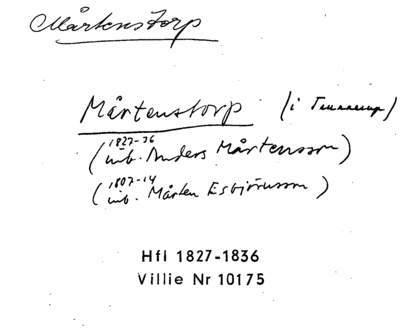 Mårtenstorp
Mårtenstorp (i
1827-36
(inb. Anders Mårtensson)
1807-14
(inb. Mårten Esbjörnsson)
Hfl 1827-1836
Villie Nr 10175